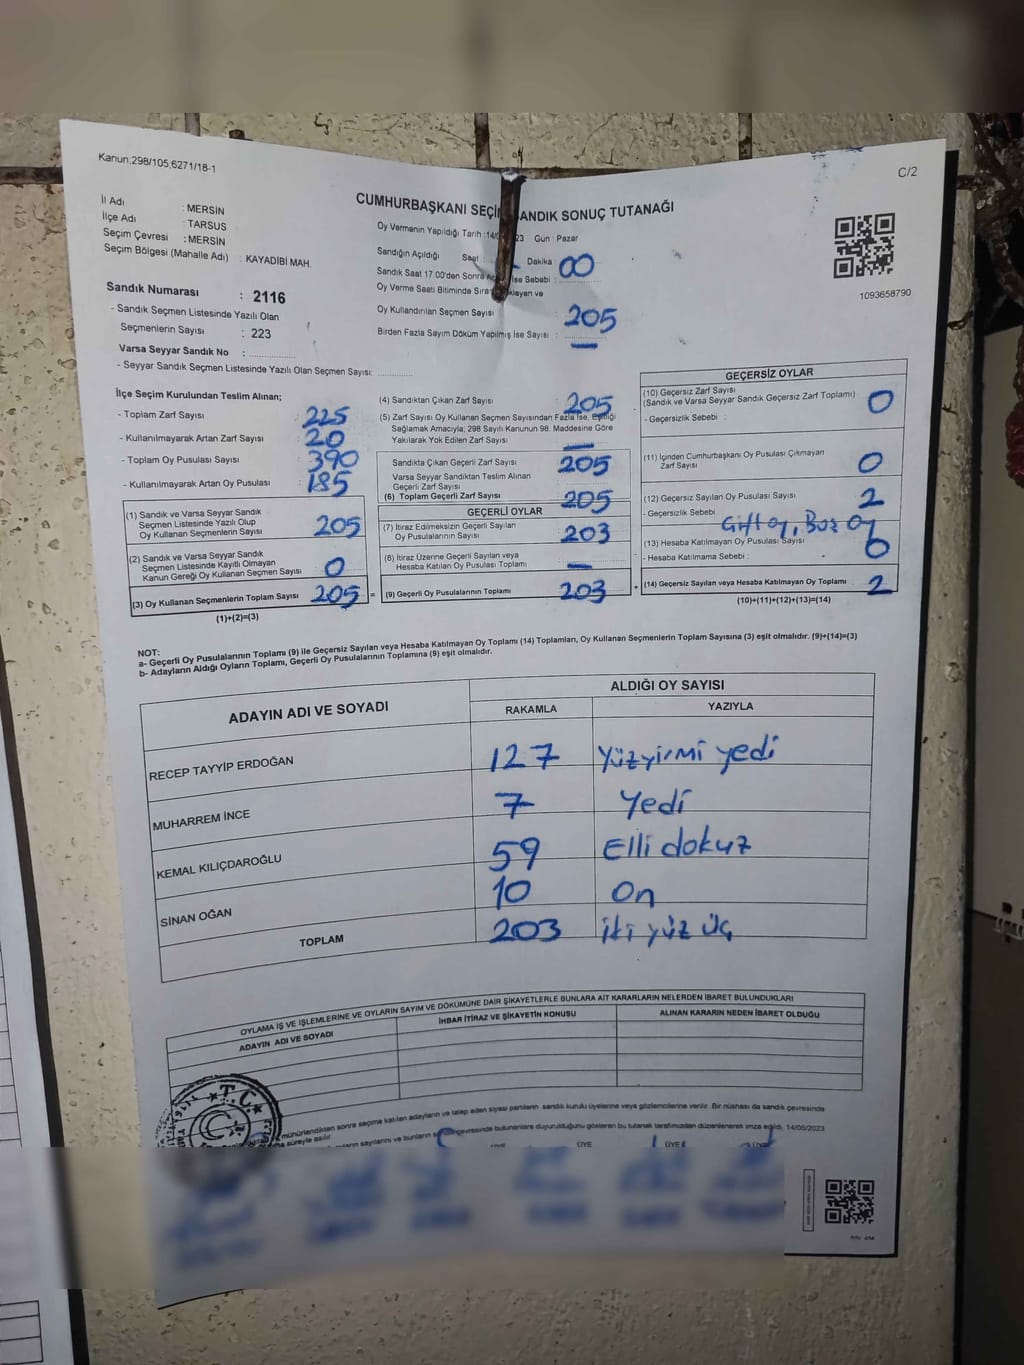 Kanun.298/105,6271/18-1
C/2
İl Adı : MERSİN
İlçe Adı : TARSUS
Seçim Çevresi : MERSİN
Seçim Bölgesi (Mahalle Adı) : KAYADİBİ MAH.
CUMHURBAŞKANI SEÇİ ANDIK SONUÇ TUTANAĞI
Oy Vermenin Yapıldığı Tarih :14/0 23 Gün : Pazar
Sandığın Açıldığı Saat : Dakika 00
Sandık Saat 17:00'den Sonra Aç ise Sebebi :
Oy Verme Saati Bitiminde Sıra kleyen ve
Oy Kullandırılan Seçmen Sayısı : 205
Birden Fazla Sayım Döküm Yapılmış İse Sayısı : —
1093658790
Sandık Numarası : 2116
- Sandık Seçmen Listesinde Yazılı Olan
Seçmenlerin Sayısı : 223
Varsa Seyyar Sandık No :
- Seyyar Sandık Seçmen Listesinde Yazılı Olan Seçmen Sayısı:
İlçe Seçim Kurulundan Teslim Alınan;
- Toplam Zarf Sayısı : 225
- Kullanılmayarak Artan Zarf Sayısı : 20
- Toplam Oy Pusulası Sayısı : 390
- Kullanılmayarak Artan Oy Pusulası : 185
(1) Sandık ve Varsa Seyyar Sandık
Seçmen Listesinde Yazılı Olup
Oy Kullanan Seçmenlerin Sayısı : 205
(2) Sandık ve Varsa Seyyar Sandık
Seçmen Listesinde Kayıtlı Olmayan
Kanun Gereği Oy Kullanan Seçmen Sayısı : 0
(3) Oy Kullanan Seçmenlerin Toplam Sayısı 205 =
(1)+(2)=(3)
(4) Sandıktan Çıkan Zarf Sayısı : 205
(5) Zarf Sayısı Oy Kullanan Seçmen Sayısından Fazla İse, Eşitliği
Sağlamak Amacıyla; 298 Sayılı Kanunun 98. Maddesine Göre
Yakılarak Yok Edilen Zarf Sayısı : —
Sandıkta Çıkan Geçerli Zarf Sayısı : 205
Varsa Seyyar Sandıktan Teslim Alınan
Geçerli Zarf Sayısı
(6) Toplam Geçerli Zarf Sayısı : 205
GEÇERLİ OYLAR
(7) İtiraz Edilmeksizin Geçerli Sayılan
Oy Pusulalarının Sayısı : 203
(8) İtiraz Üzerine Geçerli Sayılan veya
Hesaba Katılan Oy Pusulası Toplamı : —
(9) Geçerli Oy Pusulalarının Toplamı : 203 +
GEÇERSİZ OYLAR
(10) Geçersiz Zarf Sayısı
(Sandık ve Varsa Seyyar Sandık Geçersiz Zarf Toplamı) : 0
- Geçersizlik Sebebi :
(11) İçinden Cumhurbaşkanı Oy Pusulası Çıkmayan
Zarf Sayısı : 0
(12) Geçersiz Sayılan Oy Pusulası Sayısı : 2
- Geçersizlik Sebebi : Çift oy, Boş oy
(13) Hesaba Katılmayan Oy Pusulası Sayısı : 0
- Hesaba Katılmama Sebebi :
(14) Geçersiz Sayılan veya Hesaba Katılmayan Oy Toplamı : 2
(10)+(11)+(12)+(13)=(14)
NOT:
a- Geçerli Oy Pusulalarının Toplamı (9) ile Geçersiz Sayılan veya Hesaba Katılmayan Oy Toplamı (14) Toplamları, Oy Kullanan Seçmenlerin Toplam Sayısına (3) eşit olmalıdır. (9)+(14)=(3)
b- Adayların Aldığı Oyların Toplamı, Geçerli Oy Pusulalarının Toplamına (9) eşit olmalıdır.
ADAYIN ADI VE SOYADI
ALDIĞI OY SAYISI
RAKAMLA YAZIYLA
RECEP TAYYİP ERDOĞAN 127 Yüzyirmi yedi
MUHARREM İNCE 7 Yedi
KEMAL KILIÇDAROĞLU 59 Elli dokuz
SİNAN OĞAN 10 On
TOPLAM 203 iki yüz üç
OYLAMA İŞ VE İŞLEMLERİNE VE OYLARIN SAYIM VE DÖKÜMÜNE DAİR ŞİKAYETLERLE BUNLARA AİT KARARLARIN NELERDEN İBARET BULUNDUKLARI
ADAYIN ADI VE SOYADI İHBAR İTİRAZ VE ŞİKAYETİN KONUSU ALINAN KARARIN NEDEN İBARET OLDUĞU
T.C.
mühürlendikten sonra seçime katılan adayların ve talep eden siyasi partilerin sandık kurulu üyelerine veya gözlemcilerine verilir. Bir nüshası da sandık çevresinde
süreyle asılır
sayılarını ve bunların çevresinde bulunanlara duyurulduğunu gösteren bu tutanak tarafımızdan düzenlenerek imza edildi. 14/05/2023
ÜYE ÜYE ÜYE